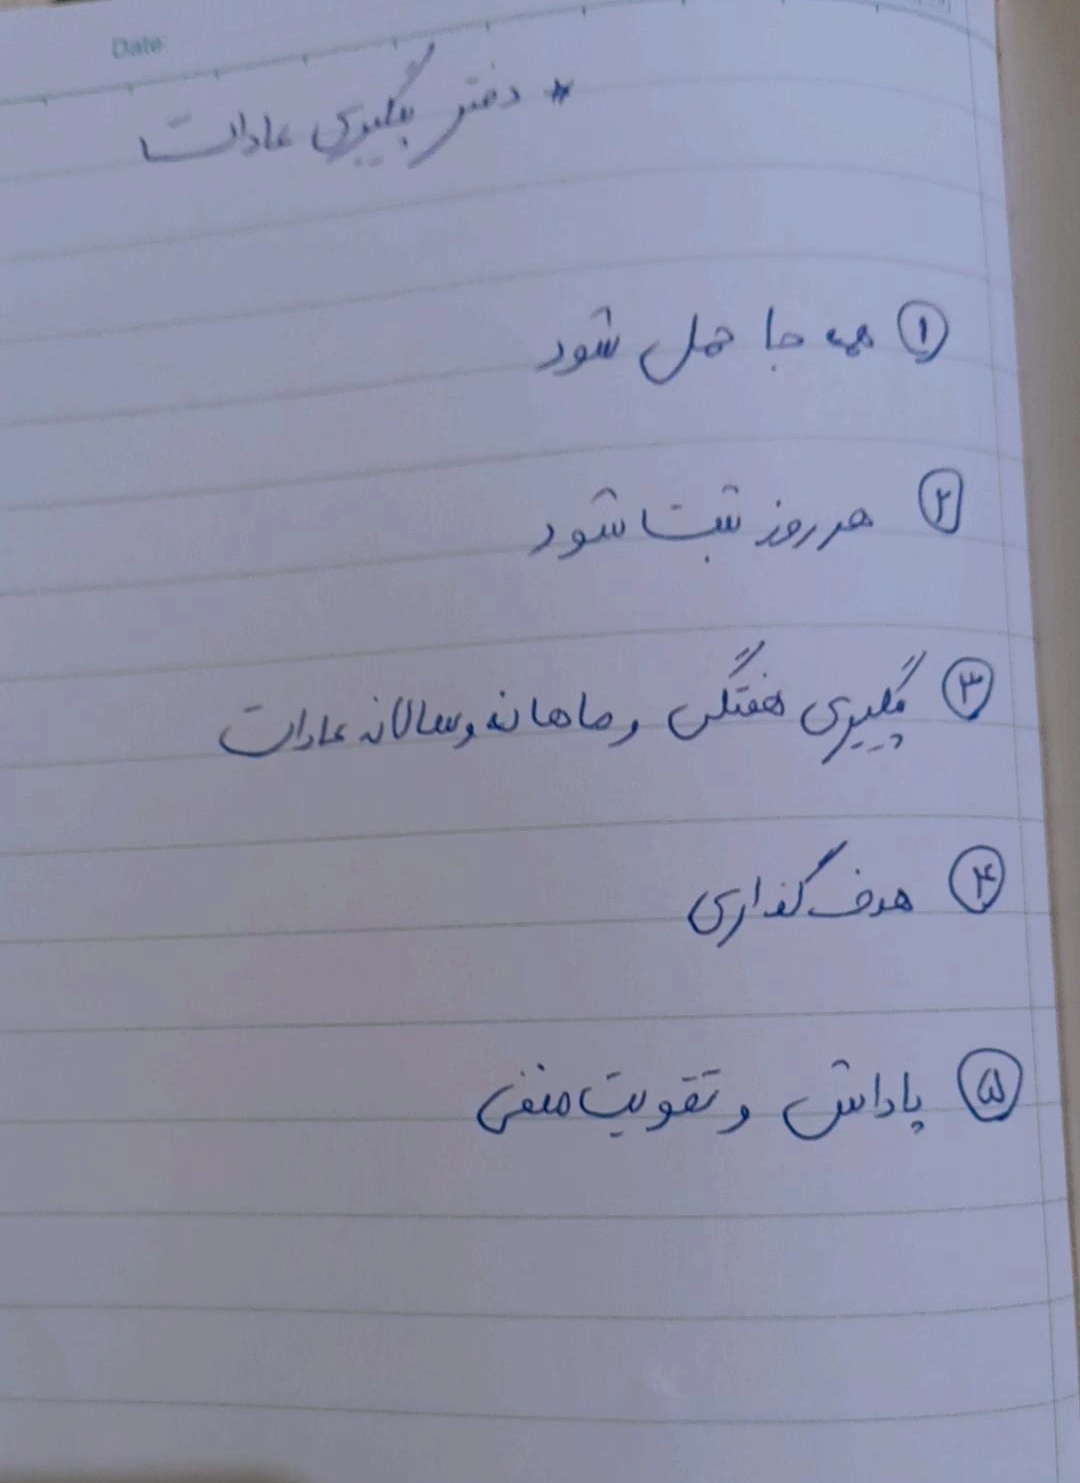 Date
* دفتر پیگیری عادات
۱ همه جا حمل شود
۲ هر روز ثبت شود
۳ پیگیری هفتگی و ماهانه و سالانه عادات
۴ هدف گذاری
۵ پاداش و تقویت منفی